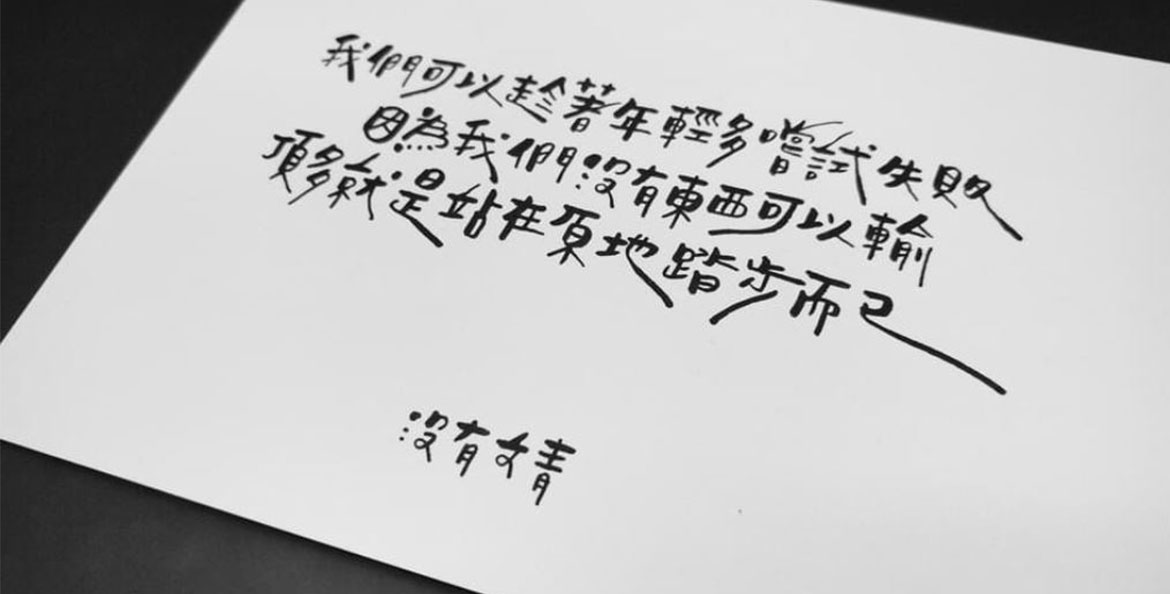 我們可以趁著年輕多嚐試失敗
因為我們沒有東西可以輸
頂多就是站在原地踏步而已
沒有文青